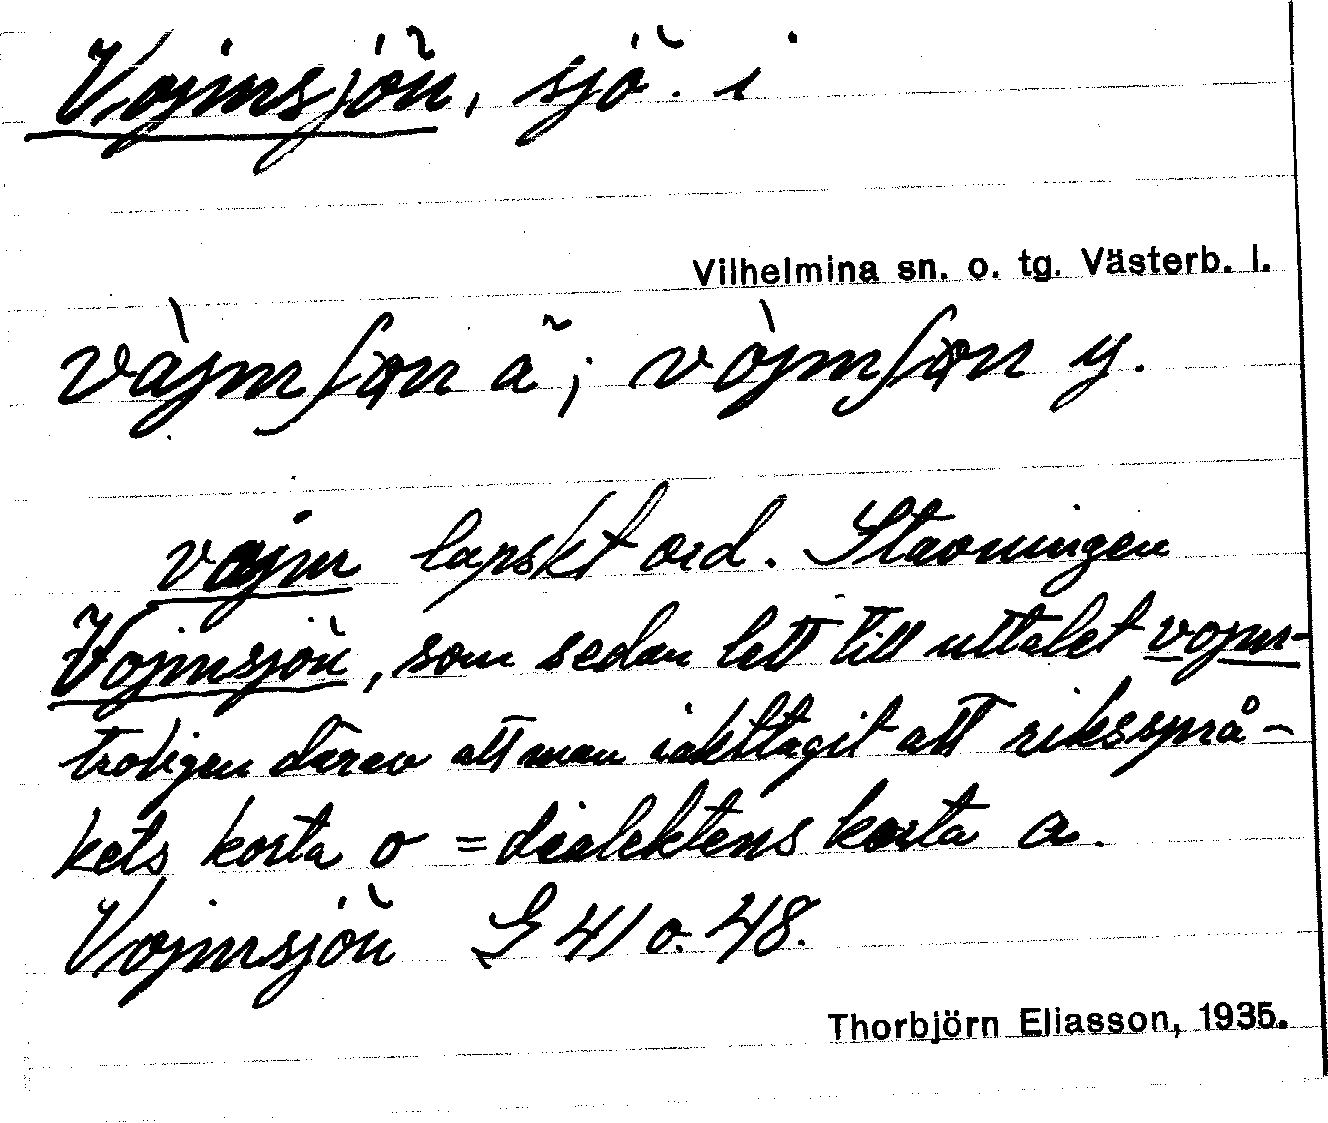 Vojmsjön, sjö. i
Vilhelmina sn. o. tg. Västerb. l.
vàjmʃøn ä; vòjmʃøn y.
vajm lapskt ord. Stavningen
Vojmsjön, som sedan lett till uttalet vojm-
troligen därav att man iakttagit att rikssprå-
kets korta o = dialektens korta a.
Vojmsjön G 41 o. 48.
Thorbjörn Eliasson, 1935.